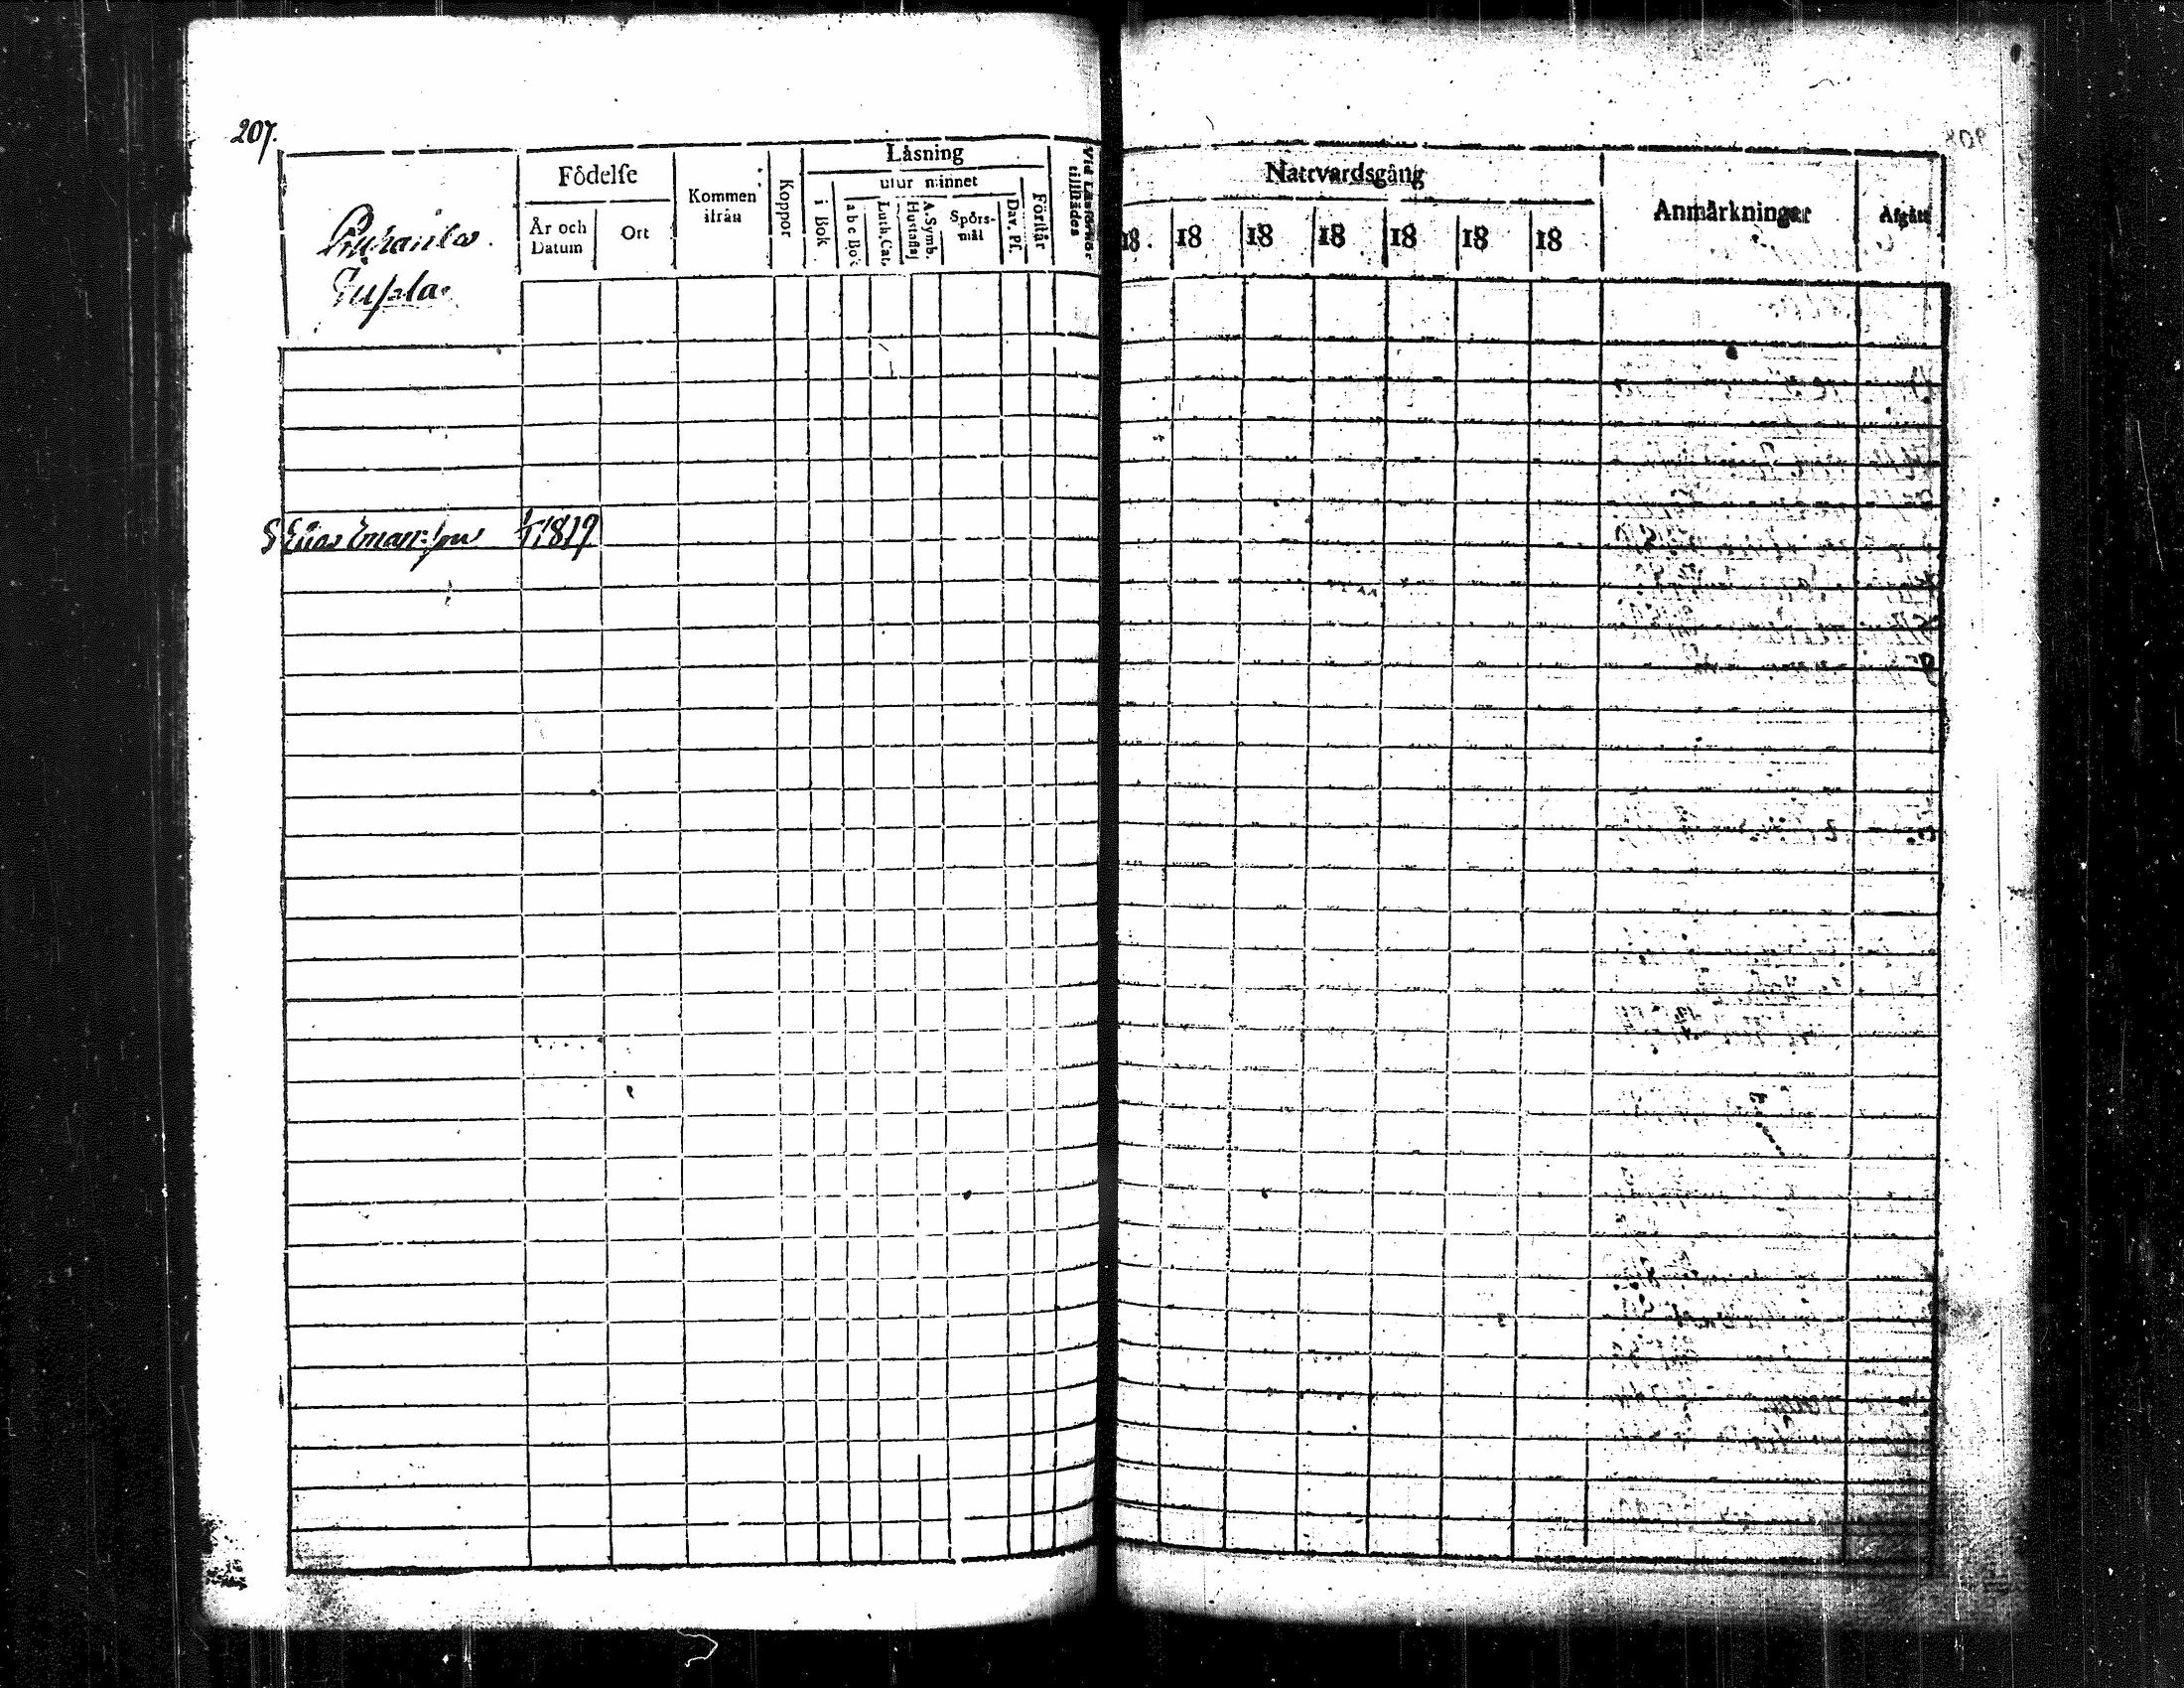 207.
Födelse
År och Datum
Ort
Kommen ifrån
Koppor
Läsning
utur minnet
i Bok
a b c Bok
Luth. Cat.
Hustafla
A. Symb.
Spörs-mål
Dav. Ps.
Förstår
Vid Läsförhör tillstädes
Nattvardsgång
18
18
18
18
18
18
18
Anmärkningar
Afgått
S Elias
1819